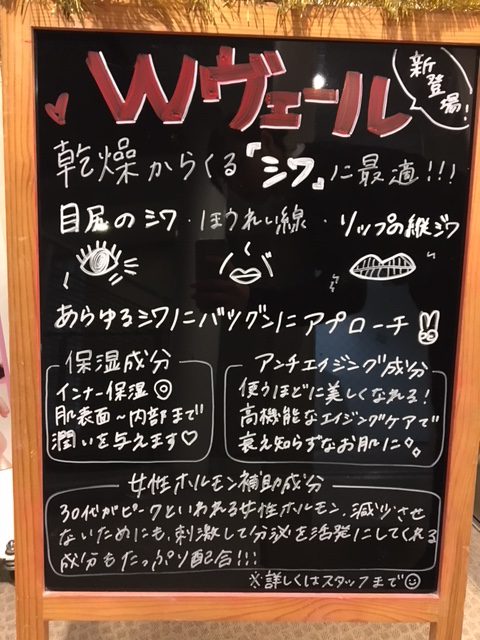 Wヴェール
新登場!
乾燥からくる『シワ』に最適!!!
目尻のシワ・ほうれい線・リップの縦ジワ
あらゆるシワにバツグンにアプローチ
保湿成分
インナー保湿◎
肌表面〜内部まで
潤いを与えます♡
アンチエイジング成分
使うほどに美しくなれる!
高機能なエイジングケアで
衰え知らずなお肌に
女性ホルモン補助成分
30代がピークといわれる女性ホルモン、減少させ
ないためにも、刺激して分泌を活発にしてくれる
成分もたっぷり配合!!!
※詳しくはスタッフまで☺